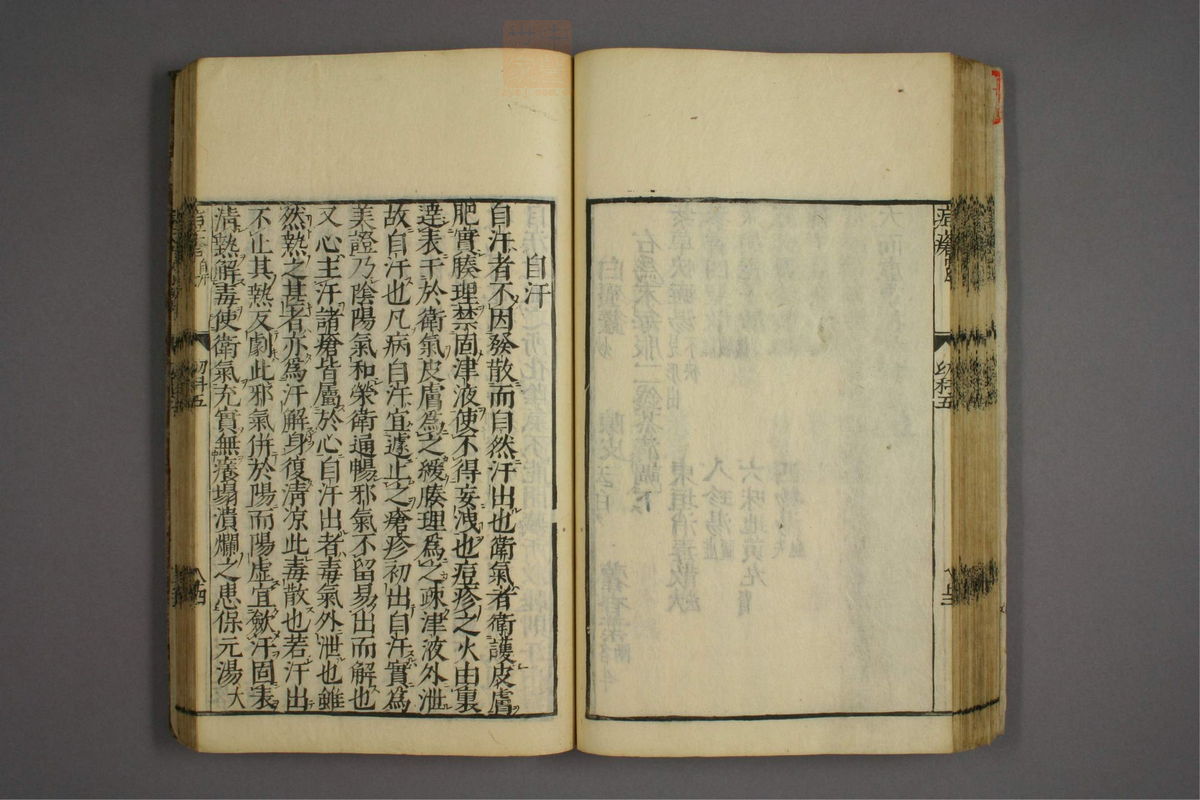 自汗
自汗者不因發散而自然汗出也衛氣者衛護皮膚
肥實腠理禁固津液使不得妄洩也痘疹之火由裏
達表干於衛氣皮膚爲之緩腠理爲之疎津液外泄
故自汗也凡病自汗宜遽止之瘡疹初出自汗實爲
美證乃陰陽氣和榮衛通暢邪氣不留易出而解也
又心主汗諸瘡皆屬於心自汗出者毒氣外泄也雖
然熱之甚者亦爲汗解身復淸凉此毒散也若汗出
不止其熱反劇此邪氣併於陽而陽虛宜斂汗固表
淸熱解毒使衛氣充實無癢塌潰爛之患保元湯大
幼科五
八十四